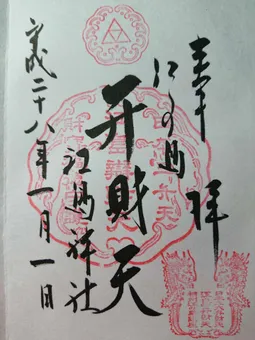 奉拝
江の島
弁財天
江島神社
平成二十八年一月一日